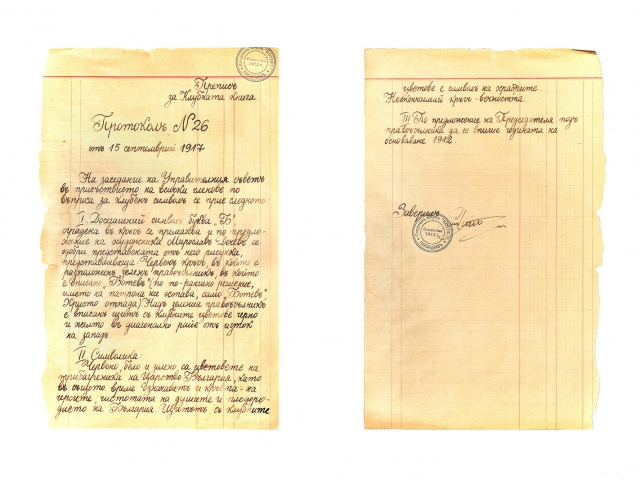 Преписъ
за Клубната книга
Протоколъ №26
отъ 15 септемврий 1917
На заседание на Управителния съветъ
въ присъствието на всички членове по
въпроса за клубенъ символъ се прие следното:
I. Досегашний символъ буква „Б",
оградена въ кръгъ се премахва и по предло-
жение на художника Мирославъ Дечевъ се
одобри представената отъ него рисунка,
представляваща: Червенъ кръгъ, въ който е
разположенъ зеленъ правоъгълникъ, въ който
е вписано „Ботевъ" (по по-ранно решение,
името на патрона ни остава само „Ботевъ",
Христо отпада). Надъ зеления правоъгълникъ
е вписанъ щитъ съ клубните цветове черно
и жълто въ диагонално райе отъ изтокъ
на западъ.
II. Символика:
Червено, бело и зелено, са цветовете на
трибагреника на Царство България, като
въ същото време означаватъ и кръвта на
героите, чистотата на душите и плодоро-
дието на България. Щитътъ съ клубните
цветове е символъ на храбрите
Нескончаемий кръгъ - вечността.
III По предложение на Председателя подъ
правоъгълника да се впише годината на
основаване 1912
Заверилъ
1912 г.